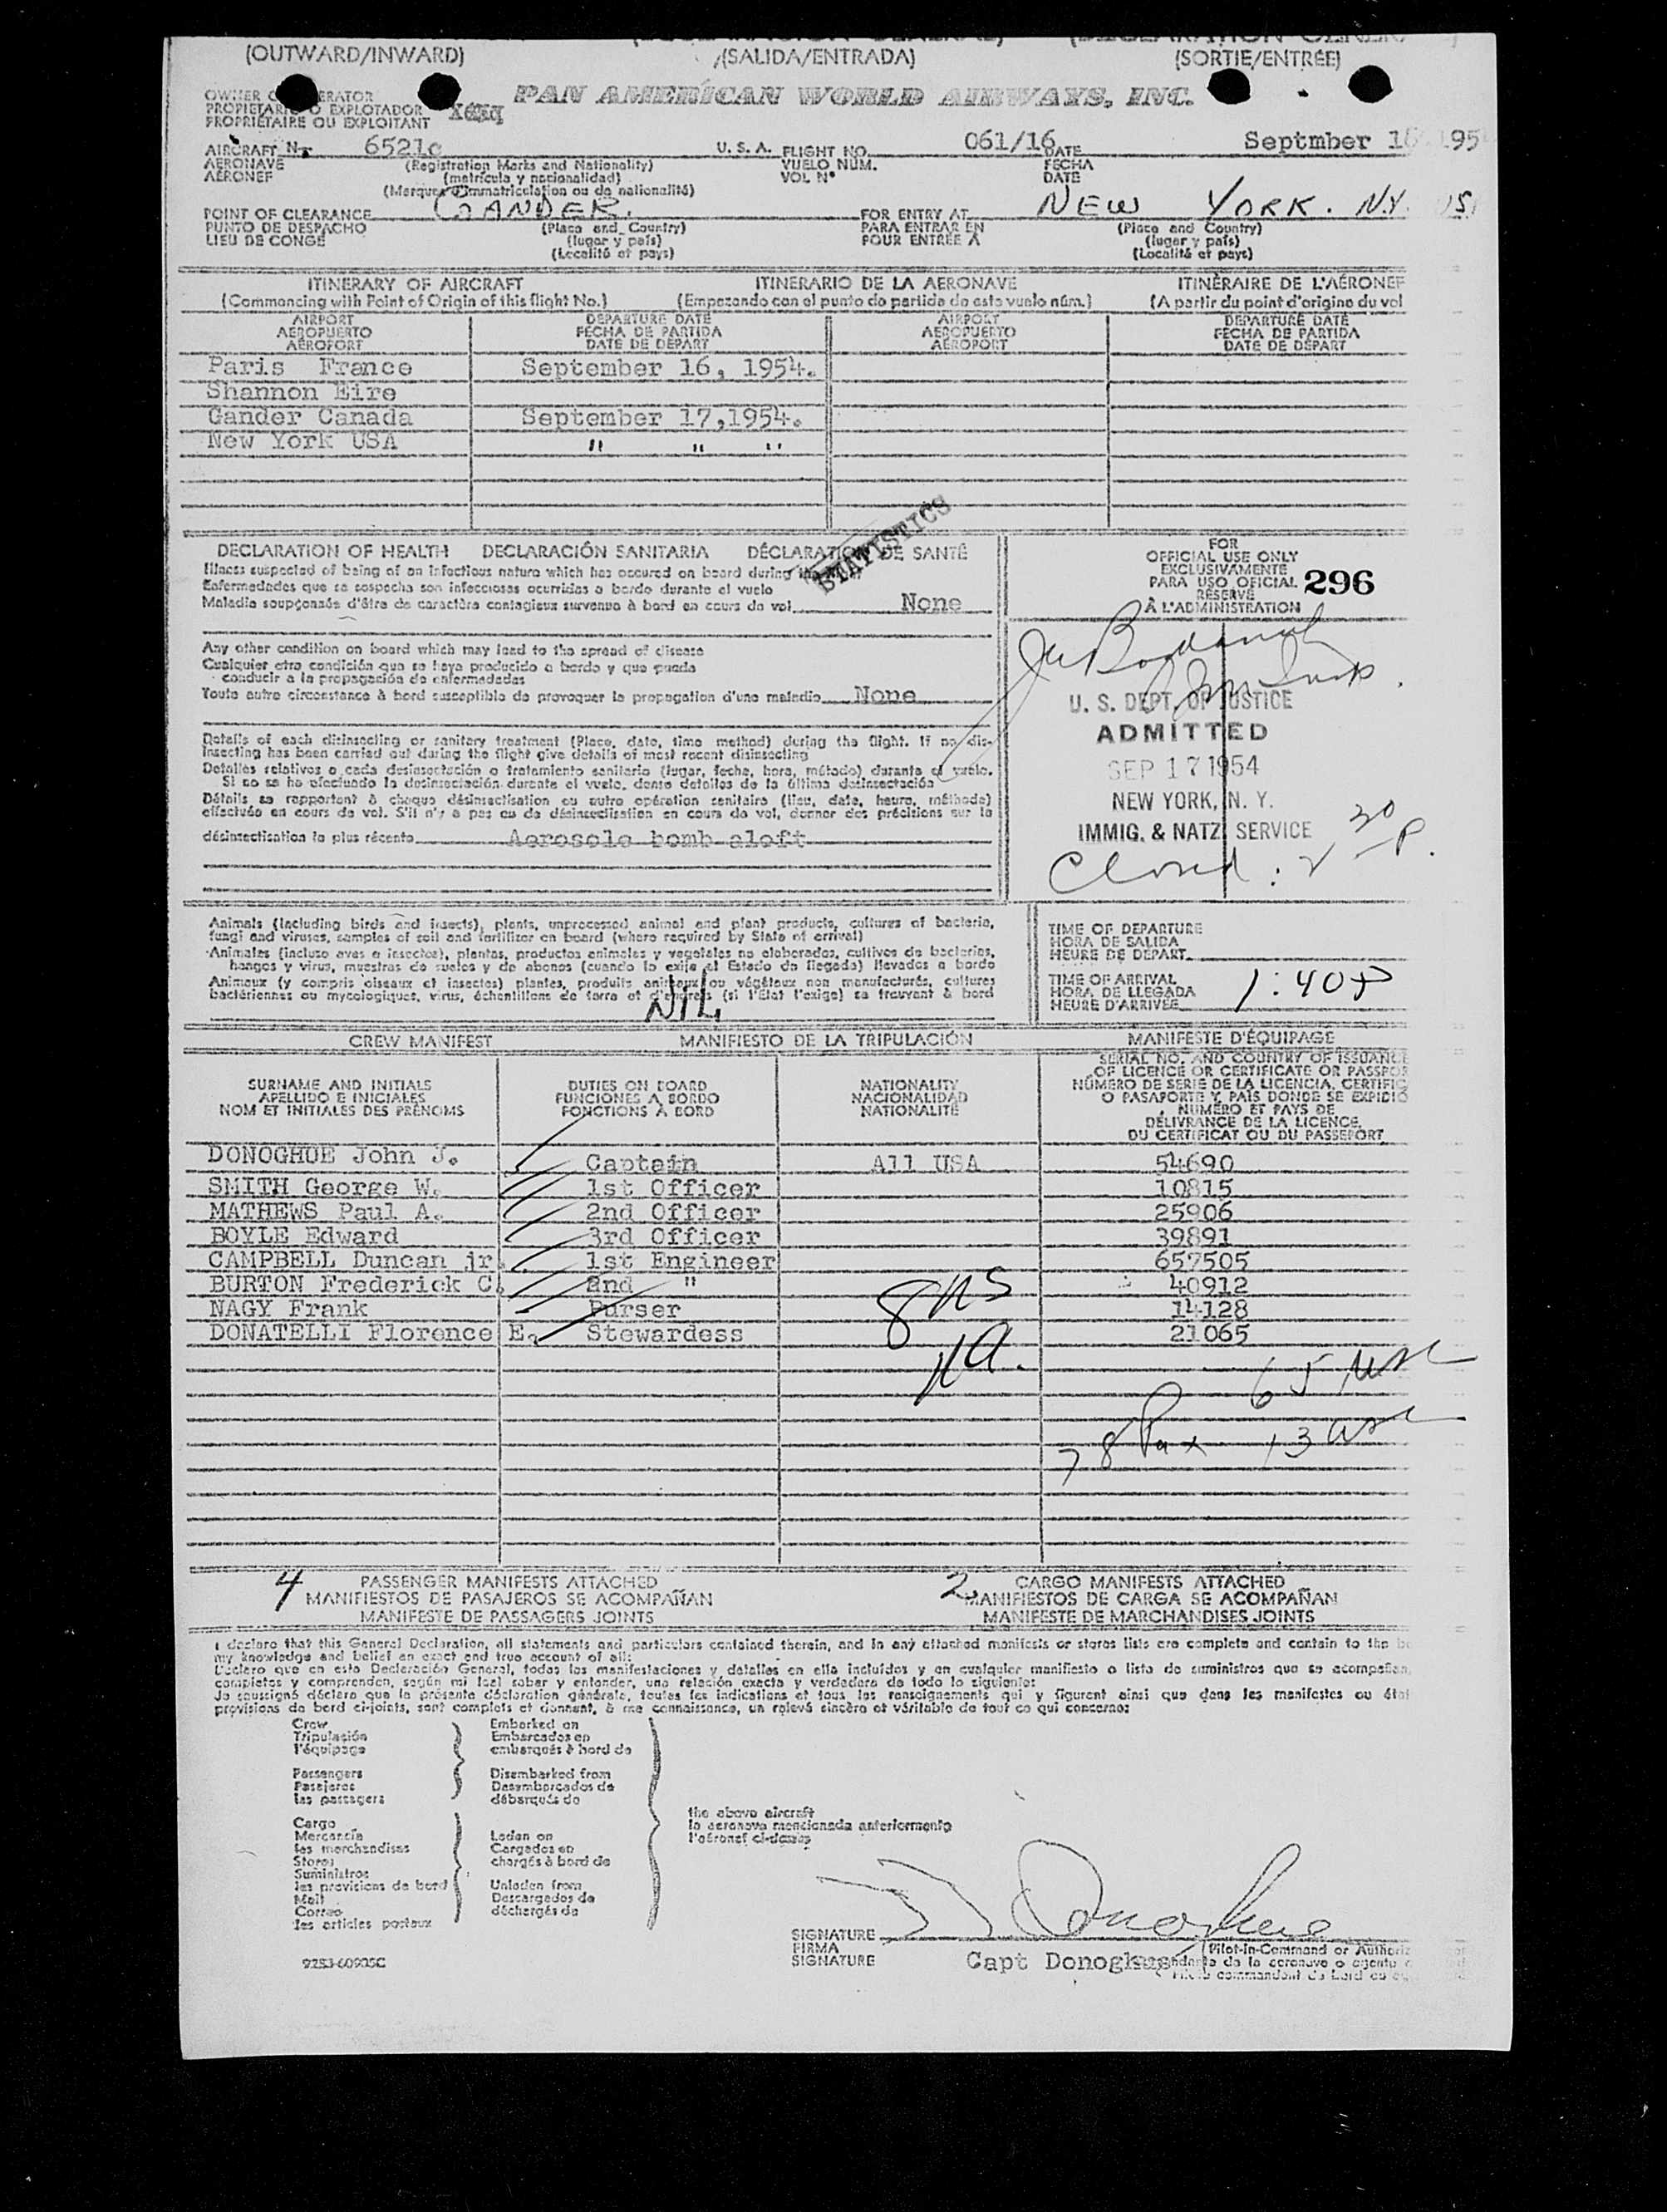 (OUTWARD/INWARD) (SALIDA/ENTRADA) (SORTIE/ENTRÉE)
PROPIETARIO O EXPLOTADOR
PROPRIÉTAIRE OU EXPLOITANT
PAN AMERICAN WORLD AIRWAYS, INC.
AIRCRAFT 6521c U. S. A. FLIGHT NO. 061/16 DATE Septmber
AERONAVE (Registration Marks and Nationality) VUELO NÚM. FECHA
AÉRONEF (matrícula y nacionalidad) VOL Nº DATE
(Marques d'immatriculation ou de nationalité)
POINT OF CLEARANCE GANDER. FOR ENTRY AT NEW YORK. N.Y.
PUNTO DE DESPACHO (Place and Country) PARA ENTRAR EN (Place and Country)
LIEU DE CONGÉ (lugar y país) POUR ENTRÉE A (lugar y país)
(Localité et pays) (Localité et pays)
ITINERARY OF AIRCRAFT ITINERARIO DE LA AERONAVE ITINÉRAIRE DE L'AÉRONEF
(Commencing with Point of Origin of this flight No.) (Empezando con el punto de partida de este vuelo núm.) (A partir du point d'origine du vol
AIRPORT DEPARTURE DATE AIRPORT DEPARTURE DATE
AEROPUERTO FECHA DE PARTIDA AEROPUERTO FECHA DE PARTIDA
AÉROPORT DATE DE DÉPART AÉROPORT DATE DE DÉPART
Paris France September 16, 1954.
Shannon Eire
Gander Canada September 17,1954.
New York USA " " "
STATISTICS
DECLARATION OF HEALTH DECLARACIÓN SANITARIA DÉCLARATION DE SANTÉ
Illness suspected of being of an infectious nature which has occured on board during
Enfermedades que se sospecha son infecciosas ocurridas a bordo durante el vuelo
Maladie soupçonnée d'être de caractère contagieux survenue à bord en cours de vol None
Any other condition on board which may lead to the spread of disease
Cualquier otra condición que se haya producido a bordo y que pueda
conducir a la propagación de enfermedades
Toute autre circonstance à bord susceptible de provoquer la propagation d'une maladie None
Details of each disinsecting or sanitary treatment (Place, date, time method) during the flight. If no dis-
insecting has been carried out during the flight give details of most recent disinsecting
Detalles relativos a cada desinsectación o tratamiento sanitario (lugar, fecha, hora, método) durante el vuelo.
Si no se ha efectuado la desinsectación durante el vuelo, dense detalles de la última desinsectación
Détails se rapportant à chaque désinsectisation ou autre opération sanitaire (lieu, date, heure, méthode)
effectuée en cours de vol. S'il n'y a pas eu de désinsectisation en cours de vol, donner des précisions sur la
désinsectisation la plus récente Aerosole bomb aloft
FOR
OFFICIAL USE ONLY
EXCLUSIVAMENTE
PARA USO OFICIAL
RÉSERVÉ
À L'ADMINISTRATION
296
U. S. DEPT. OF JUSTICE
ADMITTED
SEP 17 1954
NEW YORK, N. Y.
IMMIG. & NATZ. SERVICE
Closed: 2 30 P.
Animals (including birds and insects), plants, unprocessed animal and plant products, cultures of bacteria,
fungi and viruses, samples of soil and fertilizer on board (where required by State of arrival)
Animales (incluso aves e insectos), plantas, productos animales y vegetales no elaborados, cultivos de bacterias,
hongos y virus, muestras de suelos y de abonos (cuando lo exija el Estado de llegada) llevados a bordo
Animaux (y compris oiseaux et insectes) plantes, produits animaux ou végétaux non manufacturés, cultures
bactériennes ou mycologiques, virus, échantillons de terre et d'engrais (si l'État l'exige) se trouvant à bord
NIL
TIME OF DEPARTURE
HORA DE SALIDA
HEURE DE DÉPART
TIME OF ARRIVAL
HORA DE LLEGADA
HEURE D'ARRIVÉE 1:40P
CREW MANIFEST MANIFIESTO DE LA TRIPULACIÓN MANIFESTE D'ÉQUIPAGE
SURNAME AND INITIALS
APELLIDO E INICIALES
NOM ET INITIALES DES PRÉNOMS
DUTIES ON BOARD
FUNCIONES A BORDO
FONCTIONS À BORD
NATIONALITY
NACIONALIDAD
NATIONALITÉ
SERIAL NO. AND COUNTRY OF ISSUANCE
OF LICENCE OR CERTIFICATE OR PASSPOR
NÚMERO DE SERIE DE LA LICENCIA, CERTIFIC
O PASAPORTE Y PAÍS DONDE SE EXPIDIÓ
NUMÉRO ET PAYS DE
DÉLIVRANCE DE LA LICENCE,
DU CERTIFICAT OU DU PASSEPORT
DONOGHUE John J. Captain All USA 54690
SMITH George W. 1st Officer 10815
MATHEWS Paul A. 2nd Officer 25906
BOYLE Edward 3rd Officer 39891
CAMPBELL Duncan jr. 1st Engineer 657505
BURTON Frederick C. 2nd " 40912
NAGY Frank Purser 14128
DONATELLI Florence E. Stewardess 21065
78 Pax
4 PASSENGER MANIFESTS ATTACHED 2 CARGO MANIFESTS ATTACHED
MANIFIESTOS DE PASAJEROS SE ACOMPAÑAN MANIFIESTOS DE CARGA SE ACOMPAÑAN
MANIFESTE DE PASSAGERS JOINTS MANIFESTE DE MARCHANDISES JOINTS
I declare that this General Declaration, all statements and particulars contained therein, and in any attached manifests or stores lists are complete and contain to the
my knowledge and belief an exact and true account of all:
Declaro que en esta Declaración General, todas las manifestaciones y detalles en ella incluídos y en cualquier manifiesto o lista de suministros que se acompañan,
completos y comprenden, según mi leal saber y entender, una relación exacta y verdadera de todo lo siguiente:
Je soussigné déclare que la présente déclaration générale, toutes les indications et tous les renseignements qui y figurent ainsi que dans les manifestes ou
provisions de bord ci-joints, sont complets et donnent, à ma connaissance, un relevé sincère et véritable de tout ce qui concerne:
Crew Embarked on
Tripulación Embarcados en
l'équipage embarqués à bord de
Passengers Disembarked from
Pasajeros Desembarcados de
les passagers débarqués de
the above aircraft
la aeronave mencionada anteriormente
l'aéronef ci-dessus
Cargo
Mercancía Laden on
les marchandises Cargados en
Stores chargés à bord de
Suministros
les provisions de bord Unladen from
Mail Descargados de
Correo déchargés de
les articles postaux
SIGNATURE J J Donoghue
FIRMA (Pilot-in-Command or Authoriz
SIGNATURE Capt Donoghue